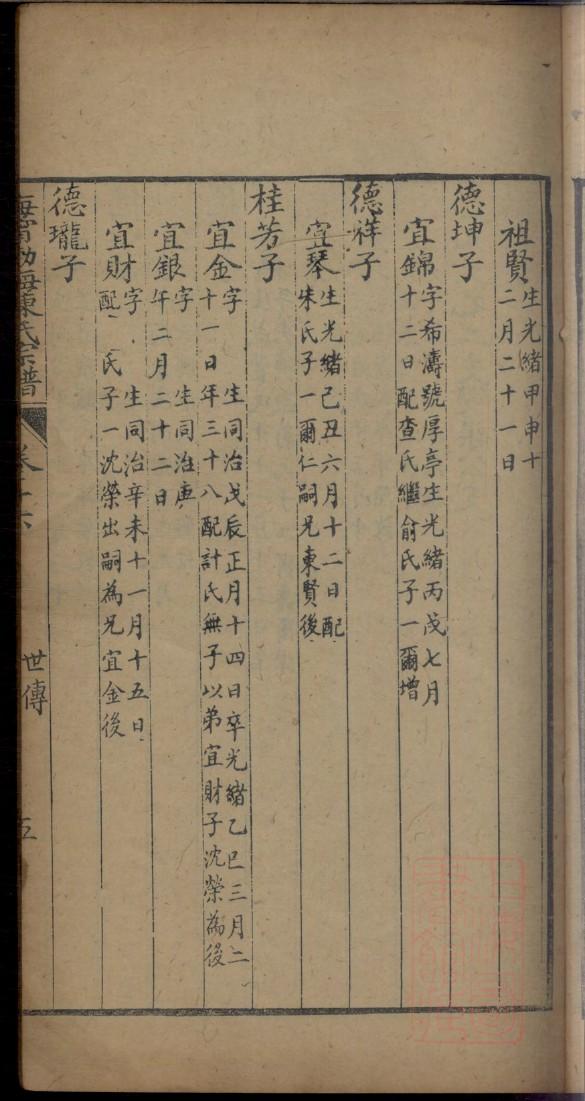 祖賢生光緒甲申十
二月二十一日
德坤子
宜錦字希濤號厚亭生光緒丙戌七月
十二日配查氏繼俞氏子一爾增
德祥子
宜琴生光緒己丑六月十二日配
朱氏子一爾仁嗣兄東賢後
桂芳子
宜金字 生同治戊辰正月十四日卒光緒乙巳三月二
十一日年三十八配計氏無子以弟宜財子沈榮為後
宜銀字 生同治庚
午二月二十二日
宜財字 生同治辛未十一月十五日
配 氏子一沈榮出嗣為兄宜金後
德瓏子
海甯渤海陳氏宗譜
世傳
五